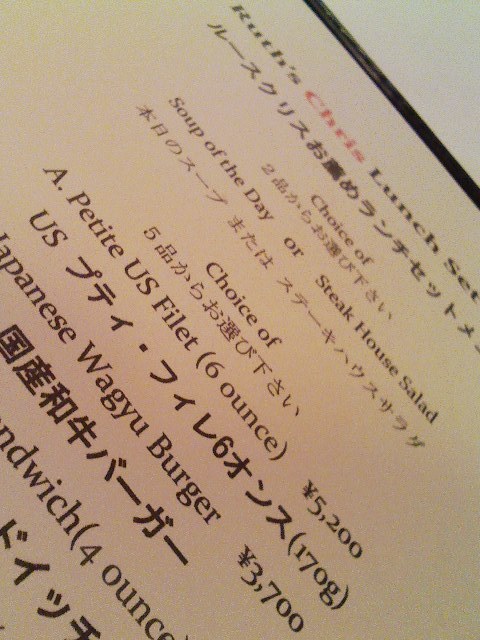 Ruth's Chris Lunch Set
ルースクリスお薦めランチセットメ
Choice of
2品からお選び下さい
Soup of the Day or Steak House Salad
本日のスープ または ステーキハウスサラダ
Choice of
5品からお選び下さい
A. Petite US Filet (6 ounce) ¥5,200
US プティ・フィレ6オンス(170g)
Japanese Wagyu Burger ¥3,700
国産和牛バーガー
ndwich(4 ounce)
ドイッチ